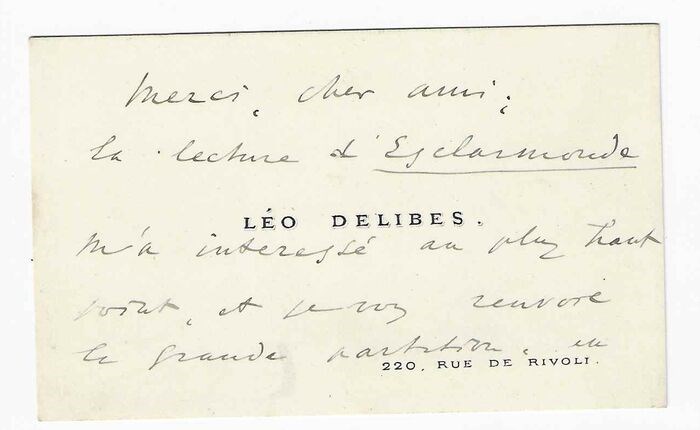 Merci, cher ami;
la lecture d'Esclarmonde
LÉO DELIBES.
m'a interessé au plus haut
point, et je vous renvoie
la grande partition, en
220, RUE DE RIVOLI.